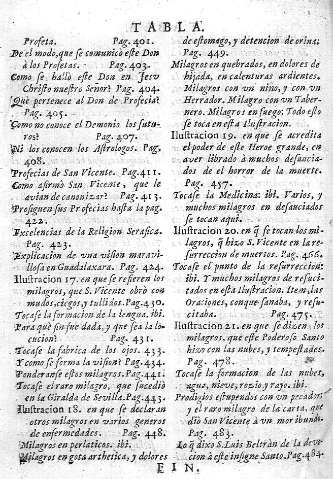 TABLA.
Profeta. Pag. 401.
De el modo, que se comunicò este Don
à los Profetas. Pag. 403.
Como se hallà este Don en Jesu
Christo nuestro Señor? Pag. 404.
Què pertenece al Don de Profecia?
Pag. 405.
Como no conoce el Demonio los futu-
ros? Pag. 407.
Ni los conocen los Astrologos. Pag.
408.
Profecias de San Vicente. Pag. 411.
Como afirmò San Vicente, que le
avian de canonizar? Pag. 413.
Prosiguen sus Profecias hasta la pag.
422.
Excelencias de la Religion Serafica.
Pag. 423.
Explicacion de una vision maravi-
llosa en Guadalaxara. Pag. 424.
Ilustracion 17. en que se refieren los
milagros, que S. Vicente obrò con
mudos, ciegos, y tullidos. Pag. 430.
Tocase la formacion de la lengua. ibi.
Para què sin fue dada, y que sea la lo-
cucion? Pag. 431.
Tocase la fabrica de los ojos. 433.
Y como se forma la vision? Pag. 434.
Ponderanse estos milagros. Pag. 441.
Tocase el raro milagro, que sucediò
en la Giralda de Sevilla. Pag. 443.
Ilustracion 18. en que se declaran
otros milagros en varios generos
de enfermedades. Pag. 448.
Milagros en perlaticos. ibi.
Milagros en gota arthetica, y dolores
de estomago, y detencion de orina.
Pag. 449.
Milagros en quebrados, en dolores de
hijada, en calenturas ardientes.
Milagros con un nino, y con un
Herrador. Milagro con un Taber-
nero. Milagros en fuego; Todo esto
se toca en esta Ilustracion.
Ilustracion 19. en que se acredita
el poder de este Heroe grande, en
aver librado à muchos desaucia-
dos de el horror de la muerte.
Pag. 457.
Tocase la Medicina: ibi. Varios, y
muchos milagros en desauciados
se tocan aqui.
Ilustracion 20. en q̃ se tocan los mi-
lagros, q̃ hizo S. Vicente en la re-
surreccion de muertos. Pag. 466.
Tocase el punto de la resurreccion:
ibi. Y muchos milagros de resuci-
tados en esta Ilustracion. Item, las
Oraciones, conque sanaba, y resu-
citaba. Pag. 475.
Ilustracion 21. en que se dizen los
milagros, que este Poderoso Santo
hizo con las nubes, y tempestades.
Pag. 478.
Tocase la formacion de las nubes,
agua, nieve, rozio, y rayo. ibi.
Prodigios estupendos con un pecador,
y el raro milagro de la carta, que
diò San Vicente à un moribundo.
Pag. 483.
Lo q̃ dixo S. Luis Beltràn de la devo-
cion à este insigne Santo. Pag. 484.
FIN.